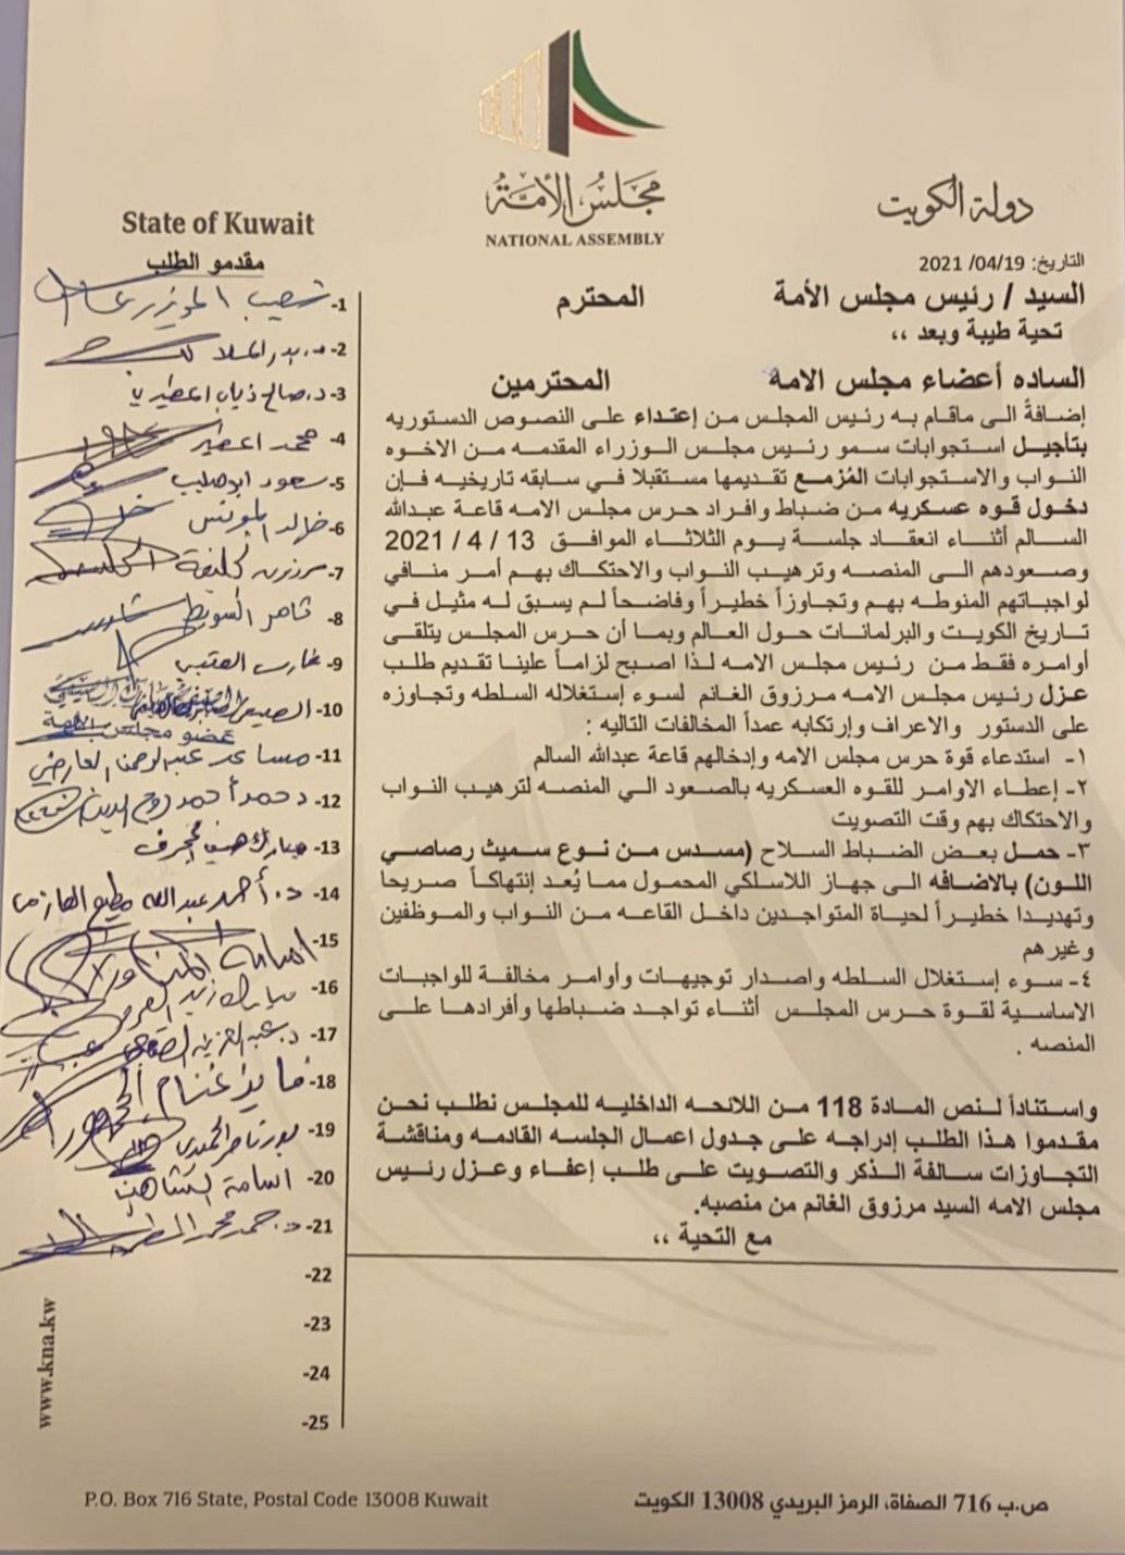 مجلس الأمة
NATIONAL ASSEMBLY
دولة الكويت
State of Kuwait
التاريخ: 2021 /04/19
السيد / رئيس مجلس الأمة المحترم
تحية طيبة وبعد ،،
الساده أعضاء مجلس الامه المحترمين
إضافةً الى ماقام به رئيس المجلس من إعتداء على النصوص الدستوريه
بتأجيل استجوابات سمو رئيس مجلس الوزراء المقدمه من الاخوه
النواب والاستجوابات المُزمع تقديمها مستقبلا في سابقه تاريخيه فإن
دخول قوه عسكريه من ضباط وافراد حرس مجلس الامه قاعة عبدالله
السالم أثناء انعقاد جلسة يوم الثلاثاء الموافق 13 / 4 / 2021
وصعودهم الى المنصه وترهيب النواب والاحتكاك بهم أمر منافي
لواجباتهم المنوطه بهم وتجاوزاً خطيراً وفاضحاً لم يسبق له مثيل في
تاريخ الكويت والبرلمانات حول العالم وبما أن حرس المجلس يتلقى
أوامره فقط من رئيس مجلس الامه لذا اصبح لزاماً علينا تقديم طلب
عزل رئيس مجلس الامه مرزوق الغانم لسوء إستغلاله السلطه وتجاوزه
على الدستور والاعراف وإرتكابه عمداً المخالفات التاليه :
١- استدعاء قوة حرس مجلس الامه وإدخالهم قاعة عبدالله السالم
٢- إعطاء الاوامر للقوه العسكريه بالصعود الي المنصه لترهيب النواب
والاحتكاك بهم وقت التصويت
٣- حمل بعض الضباط السلاح (مسدس من نوع سميث رصاصي
اللون) بالاضافه الى جهاز اللاسلكي المحمول مما يُعد إنتهاكاً صريحا
وتهديدا خطيراً لحياة المتواجدين داخل القاعه من النواب والموظفين
وغيرهم
٤- سوء إستغلال السلطه واصدار توجيهات وأوامر مخالفة للواجبات
الاساسية لقوة حرس المجلس أثناء تواجد ضباطها وأفرادها على
المنصه .
واستناداً لنص المادة 118 من اللائحه الداخليه للمجلس نطلب نحن
مقدموا هذا الطلب إدراجه على جدول اعمال الجلسه القادمه ومناقشة
التجاوزات سالفة الذكر والتصويت على طلب إعفاء وعزل رئيس
مجلس الامه السيد مرزوق الغانم من منصبه.
مع التحية ،،
مقدمو الطلب
1- شعيب المويزري
2- د. بدر الملا
3- د. صالح ذياب المطيري
4- محمد المطير
5- سعود ابوصليب
6- خالد المونس
7- مرزوق الخليفة
8- ثامر السويط
9- فارس العتيبي
10- الصيفي
عضو مجلس الامة
11- مساعد عبدالرحمن العارضي
12- د حمد أحمد روح الدين
13- مبارك هيف الحجرف
14- د. أحمد عبدالله مطيع العازمي
15- اسامة المناور
16- مبارك زيد العرو
17- د. عبدالعزيز الصقعبي
18- فايز غنام الجمهور
19- بدر ناصر الحميدي
20- اسامة الشاهين
21- د. حمد محمد المطر
22-
23-
24-
25-
www.kna.kw
P.O. Box 716 State, Postal Code 13008 Kuwait
ص.ب 716 الصفاة، الرمز البريدي 13008 الكويت